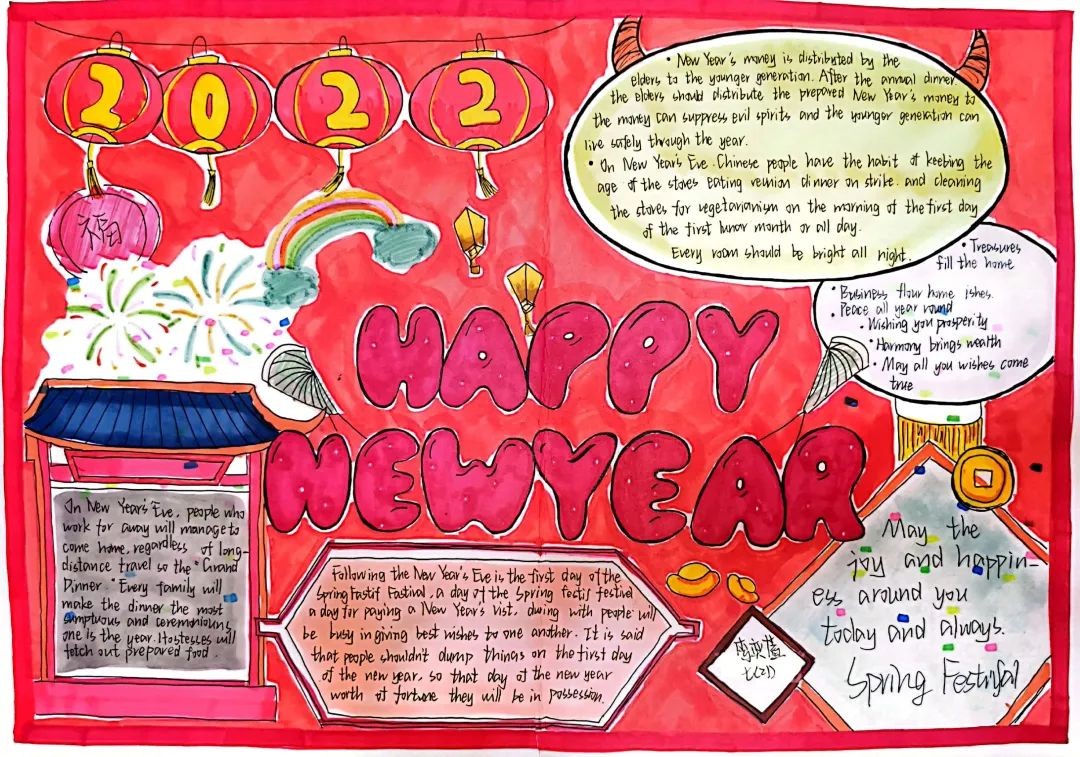 2022
福
• New Year's money is distributed by the
elders to the younger generation. After the annual dinner
the elders should distribute the prepared New Year's money to
the money can suppress evil spirits and the younger generation can
live safely through the year.
• On New Year's Eve. Chinese people have the habit of keebing the
age of the stoves eating reunion dinner on strike. and cleaning
the stoves for vegetarianism on the morning of the first day
of the first lunar month or all day.
Every room should be bright all night.
• Treasures
fill the home
• Business flour home ishes.
• Peace all year round
• Wishing you prosperity
• Harmony brings wealth
• May all you wishes come
true
HAPPY
NEWYEAR
On New Year's Eve, people who
work for away will manage to
come home, regardless of long-
distance travel so the "Grand
Dinner "Every family will
make the dinner the most
sumptuous and ceremoniouns
one is the year. Hostesses will
fetch out prepared food.
Following the New Year's Eve is the first day of the
Spring Festif Festival, a day of the Spring festif festival
a day for paying a New Year's vist. duing with people will
be busy in giving best wishes to one another. It is said
that people shouldn't dump things on the first day
of the new year. so that day of the new year
worth of fortune they will be in possession.
May the
joy and happin-
ess around you
today and always.
Spring Festival
七(21)